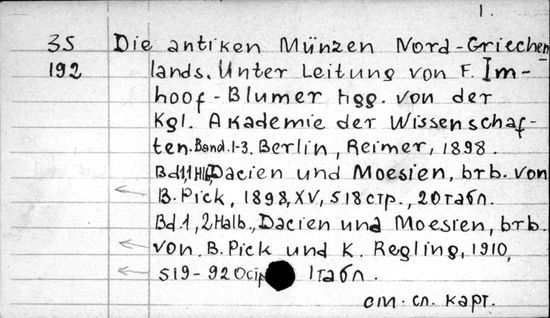 1.
35 Die antiken Münzen Nord-Griechen
192 lands. Unter Leitung von F. Im-
hoof-Blumer hgg. von der
Kgl. Akademie der Wissenschaf-
ten. Band. 1-3. Berlin, Reimer, 1898.
Bd 1, 1 Hlb, Dacien und Moesien, brb. von
B. Pick, 1898, XV, 518 стр., 20 табл.
Bd. 1, 2 Halb., Dacien und Moesien, brb.
von. B. Pick und K. Regling, 1910,
519-920 стр 1 табл.
см. сл. карт.